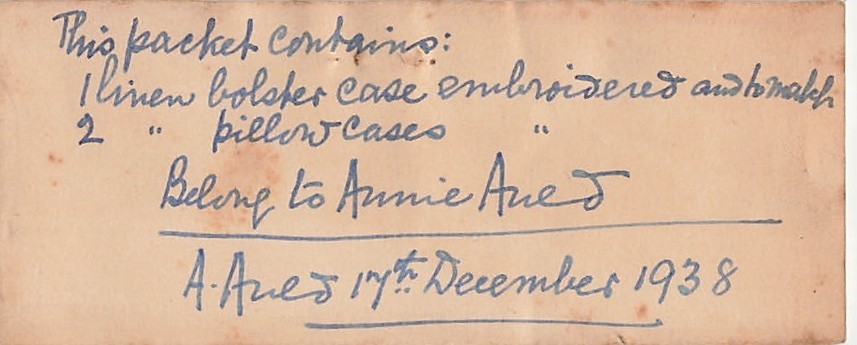 This packet contains:
1 linen bolster case embroidered and to match
2 " pillow cases "
Belong to Annie Aued
A. Aued 17th December 1938